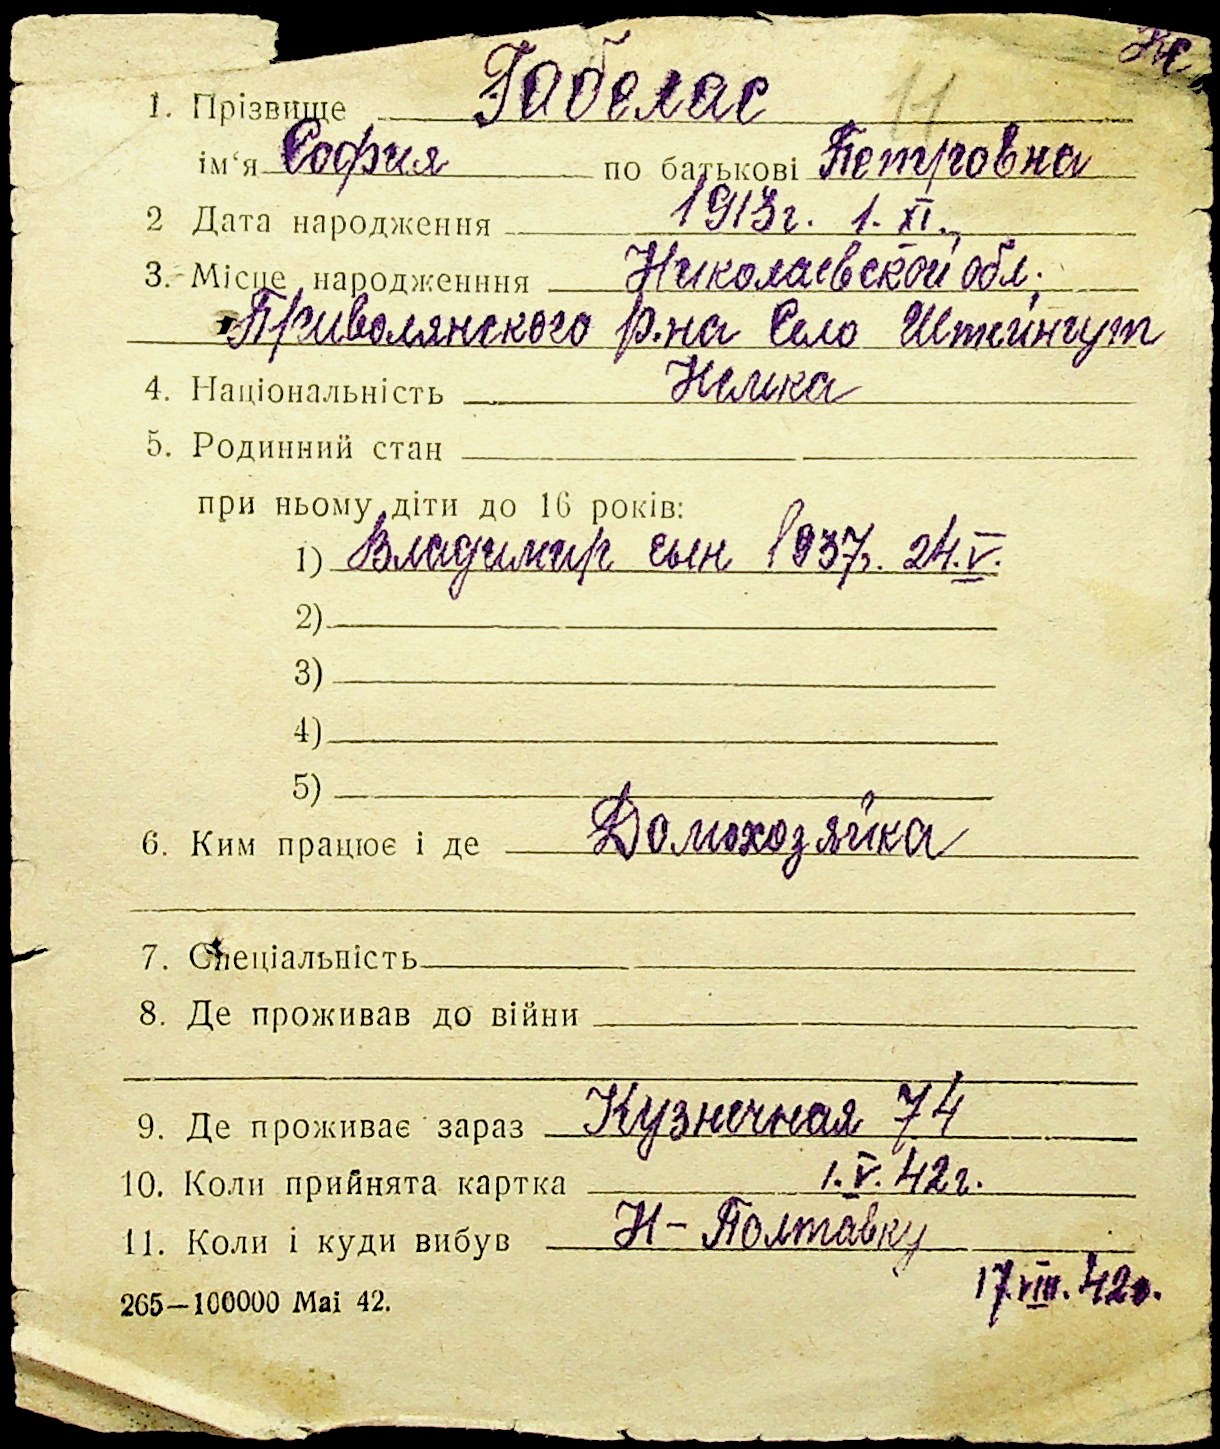 Нк
11
1. Прізвище Габелас
ім‘я София по батькові Петровна
2 Дата народження 1913г. 1. XI.
3. Місце народженння Николаевской обл.
Приволянского р-на Село Штейнгут
4. Національність Немка
5. Родинний стан
при ньому діти до 16 років:
1) Владимир сын 1937г. 24.V.
2)
3)
4)
5)
6. Ким працює і де Домохозяйка
7. Спеціальність
8. Де проживав до війни
9. Де проживає зараз Кузнечная 74
10. Коли прийнята картка 1.V.42г.
11. Коли і куди вибув Н-Полтавку
17.VIII.42г.
265—100000 Mai 42.